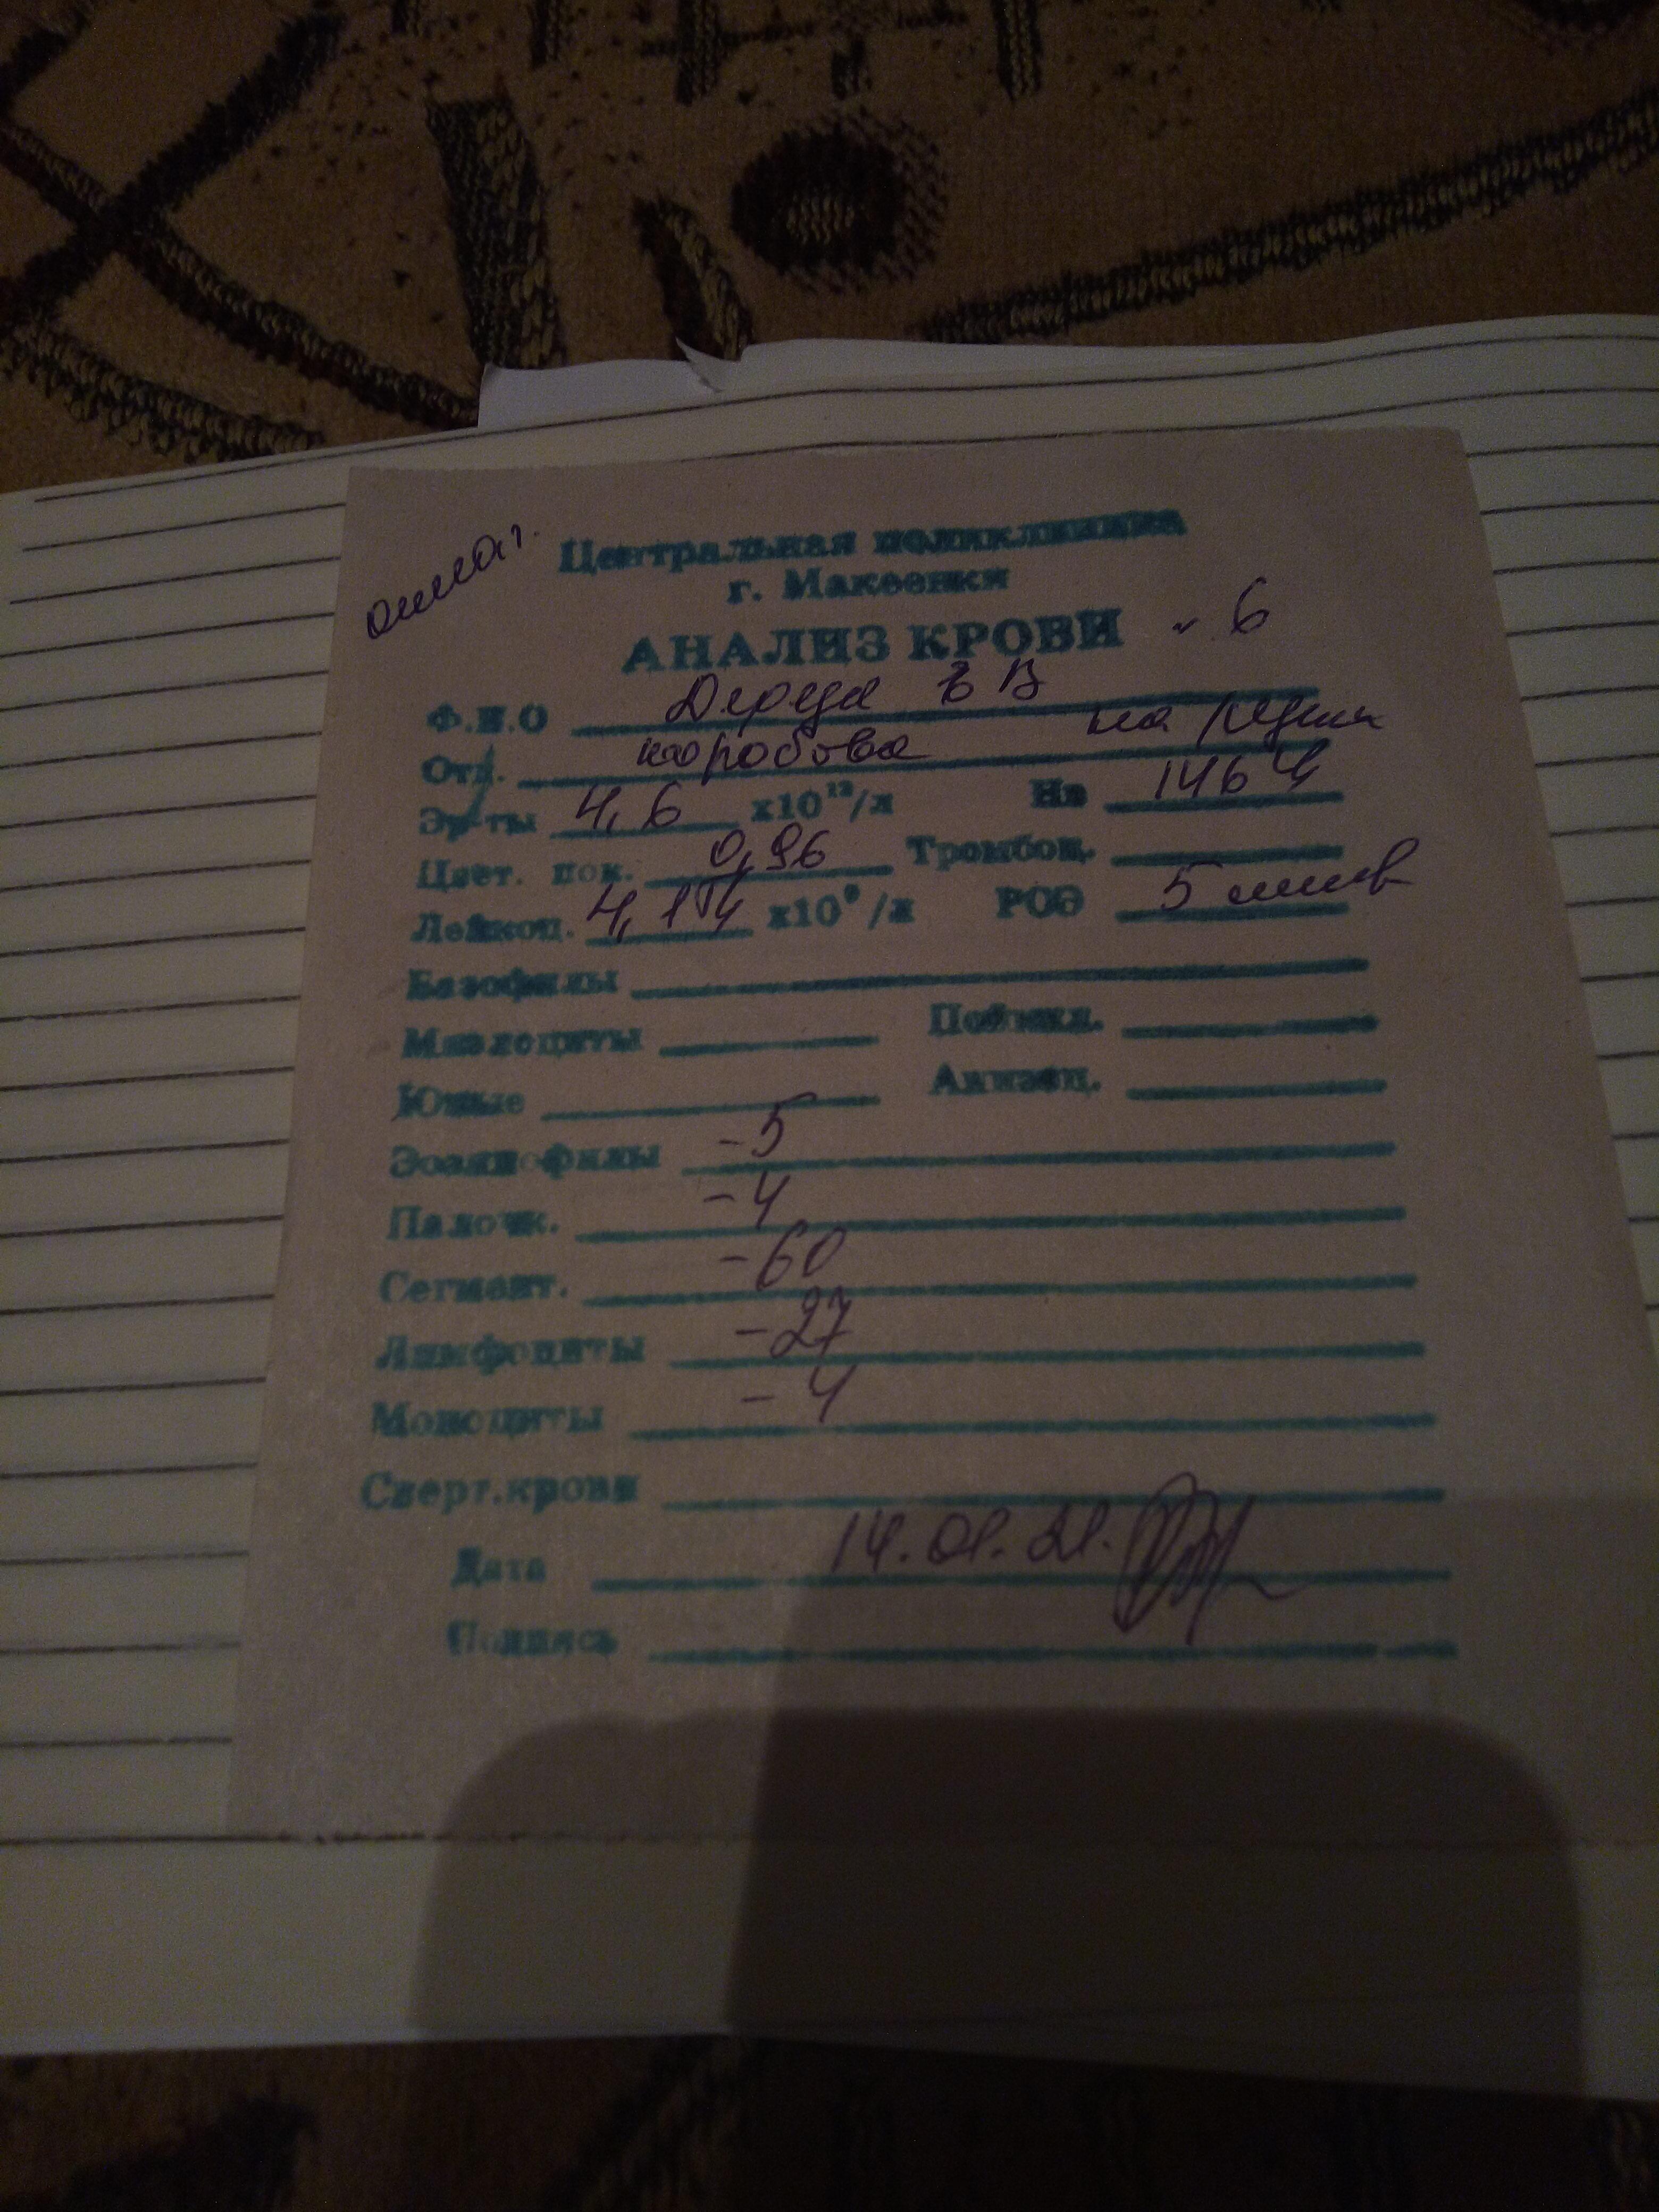 Центральная поликлиника
г. Макеевки
АНАЛИЗ КРОВИ 6
Ф.И.О В
Отд. на
Эр-ты 4,6 х10¹²/л Нв 146
Цвет. пок. 0,96 Тромбоц.
Лейкоц. х10⁹/л РОЭ 5
Базофилы
Миелоциты Пойкил.
Юные Анизоц.
Эозинофилы -5
Палочк. -4
Сегмент. -60
Лимфоциты -27
Моноциты -4
Сверт.крови
Дата 14.01.21.
Подпись